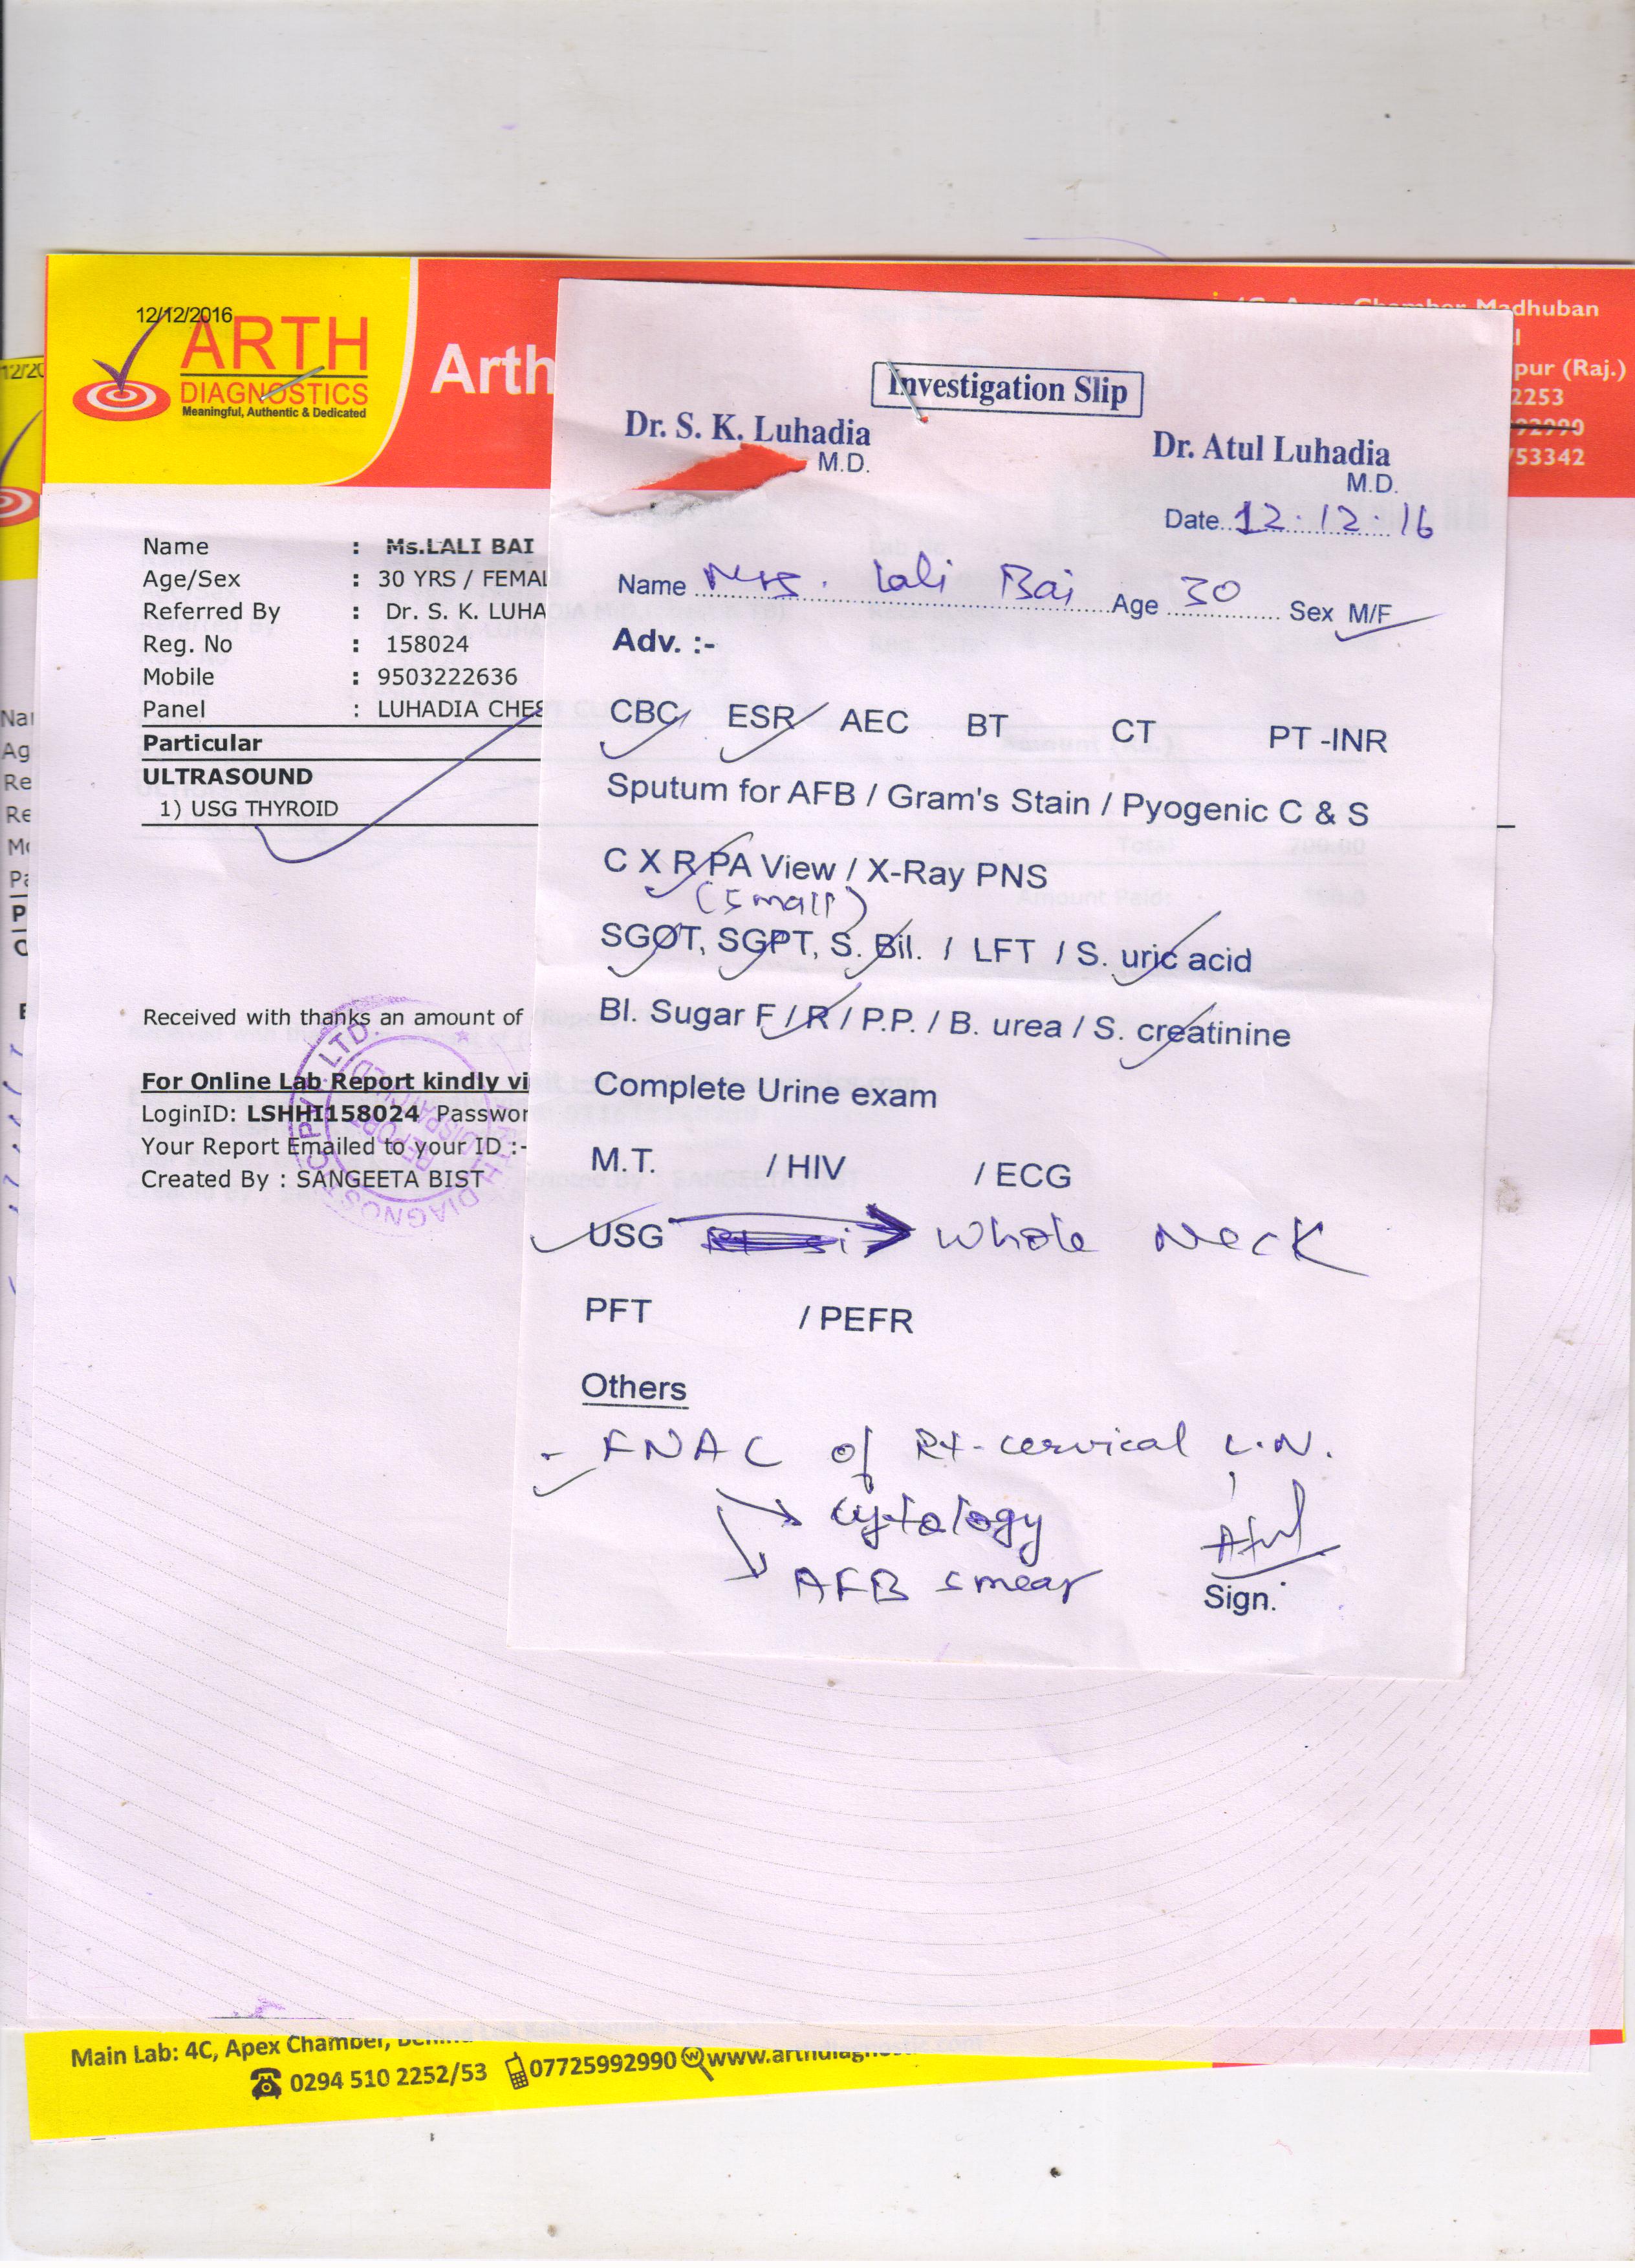 12/12/2016
ARTH
DIAGNOSTICS
Meaningful, Authentic & Dedicated
Arth
Madhuban
pur (Raj.)
2253
92990
53342
12/20
Name : Ms.LALI BAI
Age/Sex : 30 YRS / FEMAL
Referred By : Dr. S. K. LUHA
Reg. No : 158024
Mobile : 9503222636
Panel : LUHADIA CHES
Particular
ULTRASOUND
1) USG THYROID
Received with thanks an amount of
For Online Lab Report kindly vi
LoginID: LSHHI158024 Passwor
Your Report Emailed to your ID :-
Created By : SANGEETA BIST
Investigation Slip
Dr. S. K. Luhadia
M.D.
Dr. Atul Luhadia
M.D.
Date 12.12.16
Name Mrs. Lali Bai Age 30 Sex M/F
Adv. :-
CBC ESR AEC BT CT PT -INR
Sputum for AFB / Gram's Stain / Pyogenic C & S
C X R PA View / X-Ray PNS
(small)
SGOT, SGPT, S. Bil. / LFT / S. uric acid
Bl. Sugar F / R / P.P. / B. urea / S. creatinine
Complete Urine exam
M.T. / HIV / ECG
USG Whole Neck
PFT / PEFR
Others
- FNAC of Rt-cervical L.N.
cytology
AFB smear
Atul
Sign.
Main Lab: 4C, Apex Chamber,
0294 510 2252/53 07725992990